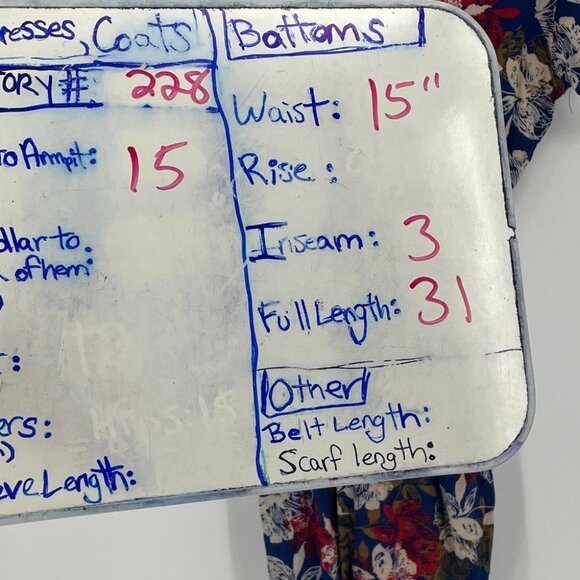 resses, Coats
TORY # 228
to Armpit: 15
ollar to
of hem
:
ers:
eve Length:
Bottoms
Waist: 15"
Rise:
Inseam: 3
Full Length: 31
Other
Belt Length:
Scarf length: